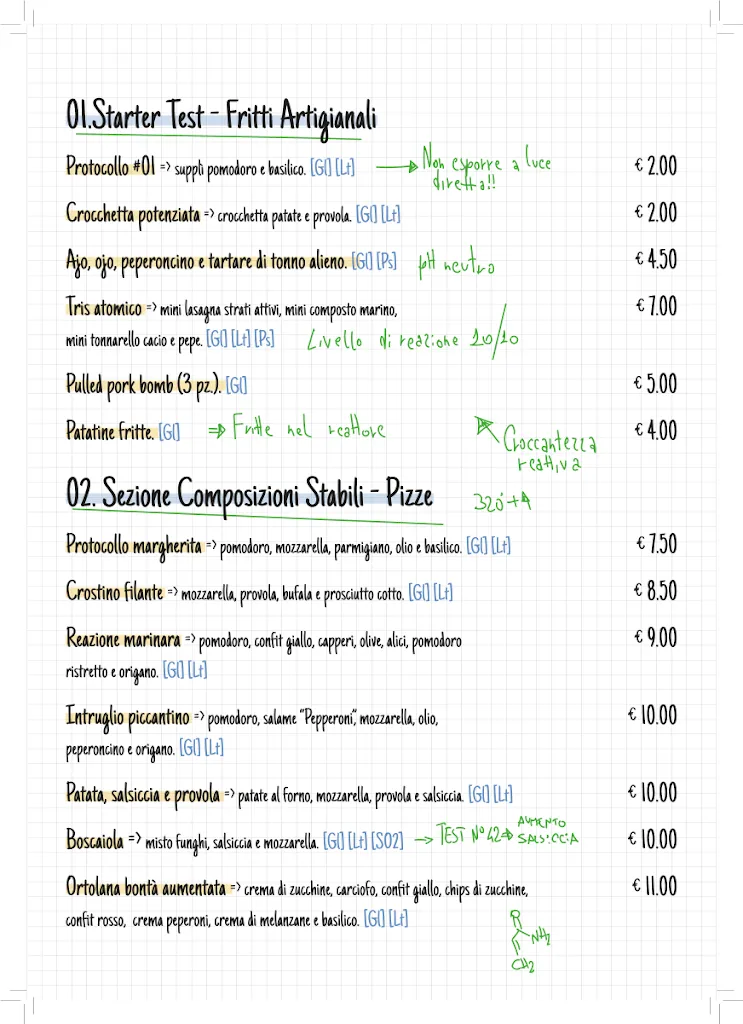 01.Starter Test - Fritti Artigianali
Protocollo #01 => supplì pomodoro e basilico. [Gl] [Lt] → Non esporre a luce € 2.00
diretta!!
Crocchetta potenziata => crocchetta patate e provola. [Gl] [Lt] € 2.00
Ajo, ojo, peperoncino e tartare di tonno alieno. [Gl] [Ps] pH neutro € 4.50
Tris atomico => mini lasagna strati attivi, mini composto marino, € 7.00
mini tonnarello cacio e pepe. [Gl] [Lt] [Ps] Livello di reazione 10/10
Pulled pork bomb (3 pz.). [Gl] € 5.00
Patatine fritte. [Gl] ⇒ Fritte nel reattore € 4.00
Croccantezza
reattiva
02. Sezione Composizioni Stabili - Pizze
320°+4
Protocollo margherita => pomodoro, mozzarella, parmigiano, olio e basilico. [Gl] [Lt] € 7.50
Crostino filante => mozzarella, provola, bufala e prosciutto cotto. [Gl] [Lt] € 8.50
Reazione marinara => pomodoro, confit giallo, capperi, olive, alici, pomodoro € 9.00
ristretto e origano. [Gl] [Lt]
Intruglio piccantino => pomodoro, salame "Pepperoni", mozzarella, olio, € 10.00
peperoncino e origano. [Gl] [Lt]
Patata, salsiccia e provola => patate al forno, mozzarella, provola e salsiccia. [Gl] [Lt] € 10.00
Boscaiola => misto funghi, salsiccia e mozzarella. [Gl] [Lt] [SO2] → TEST N°42 ⇒ AUMENTO € 10.00
SALSICCIA
Ortolana bontà aumentata => crema di zucchine, carciofo, confit giallo, chips di zucchine, € 11.00
confit rosso, crema peperoni, crema di melanzane e basilico. [Gl] [Lt]
R
NH2
CH2